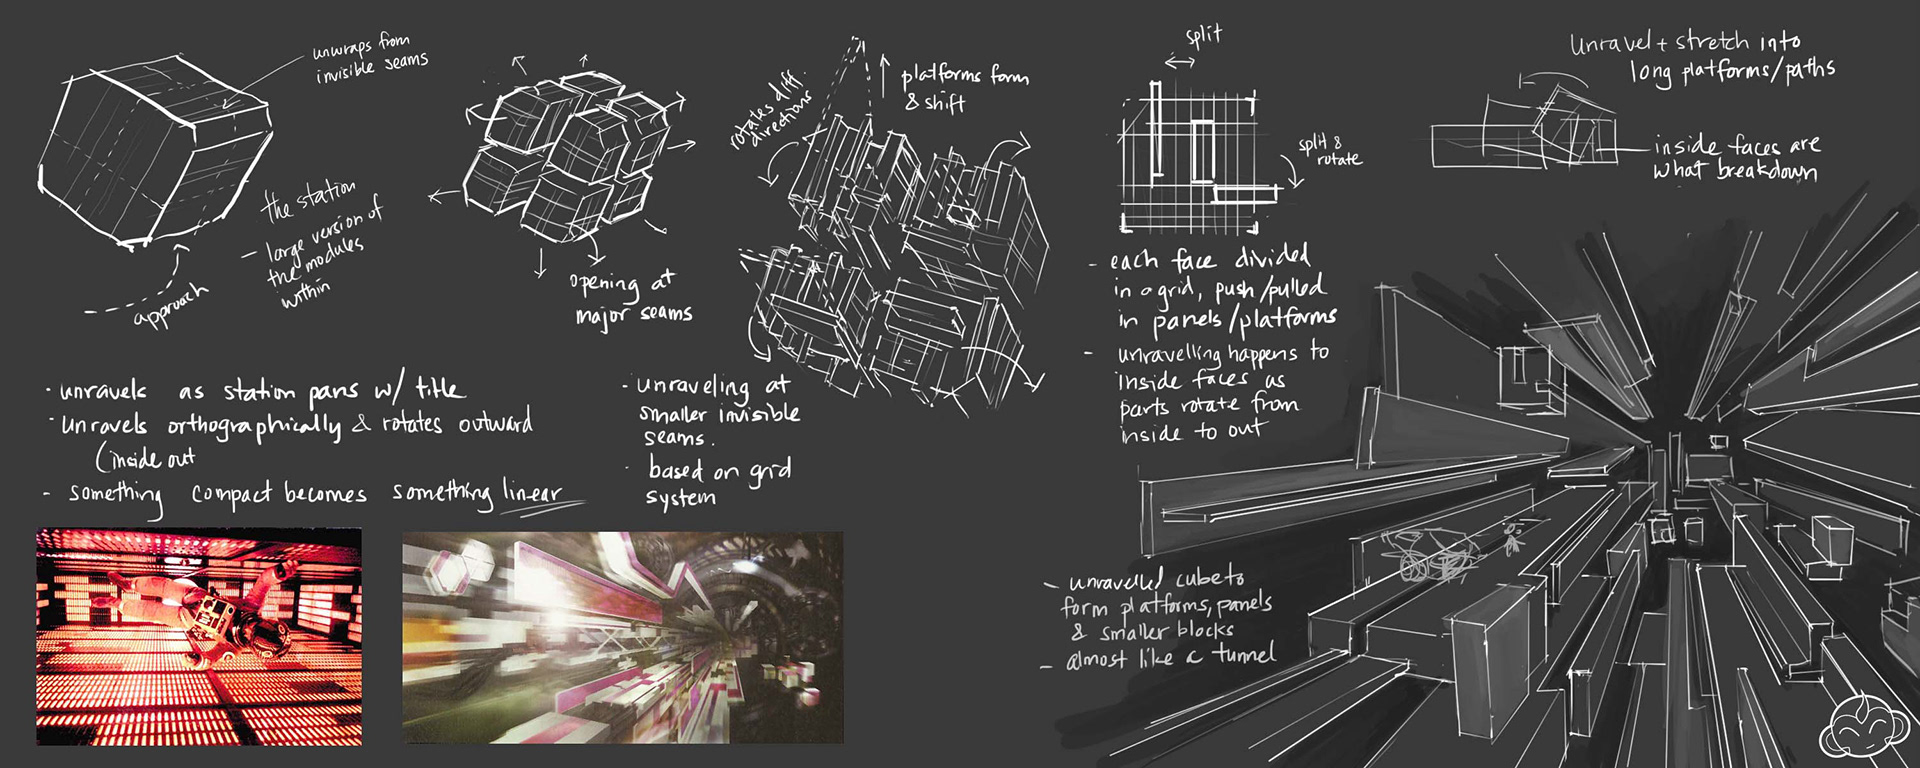 unwraps from
invisible seams
the station
- large version of
the modules
within
approach
opening at
major seams
rotates diff.
directions
platforms form
& shift
split
split &
rotate
Unravel + stretch into
long platforms/paths
inside faces are
what breakdown
· unravels as station pans w/ title
· unravels orthographically & rotates outward
(inside out
- something compact becomes something linear
· unraveling at
smaller invisible
seams.
· based on grid
system
- each face divided
in a grid, push/pulled
in panels/platforms
- unravelling happens to
inside faces as
parts rotate from
inside to out
- unravelled cube to
form platforms, panels
& smaller blocks
- almost like a tunnel